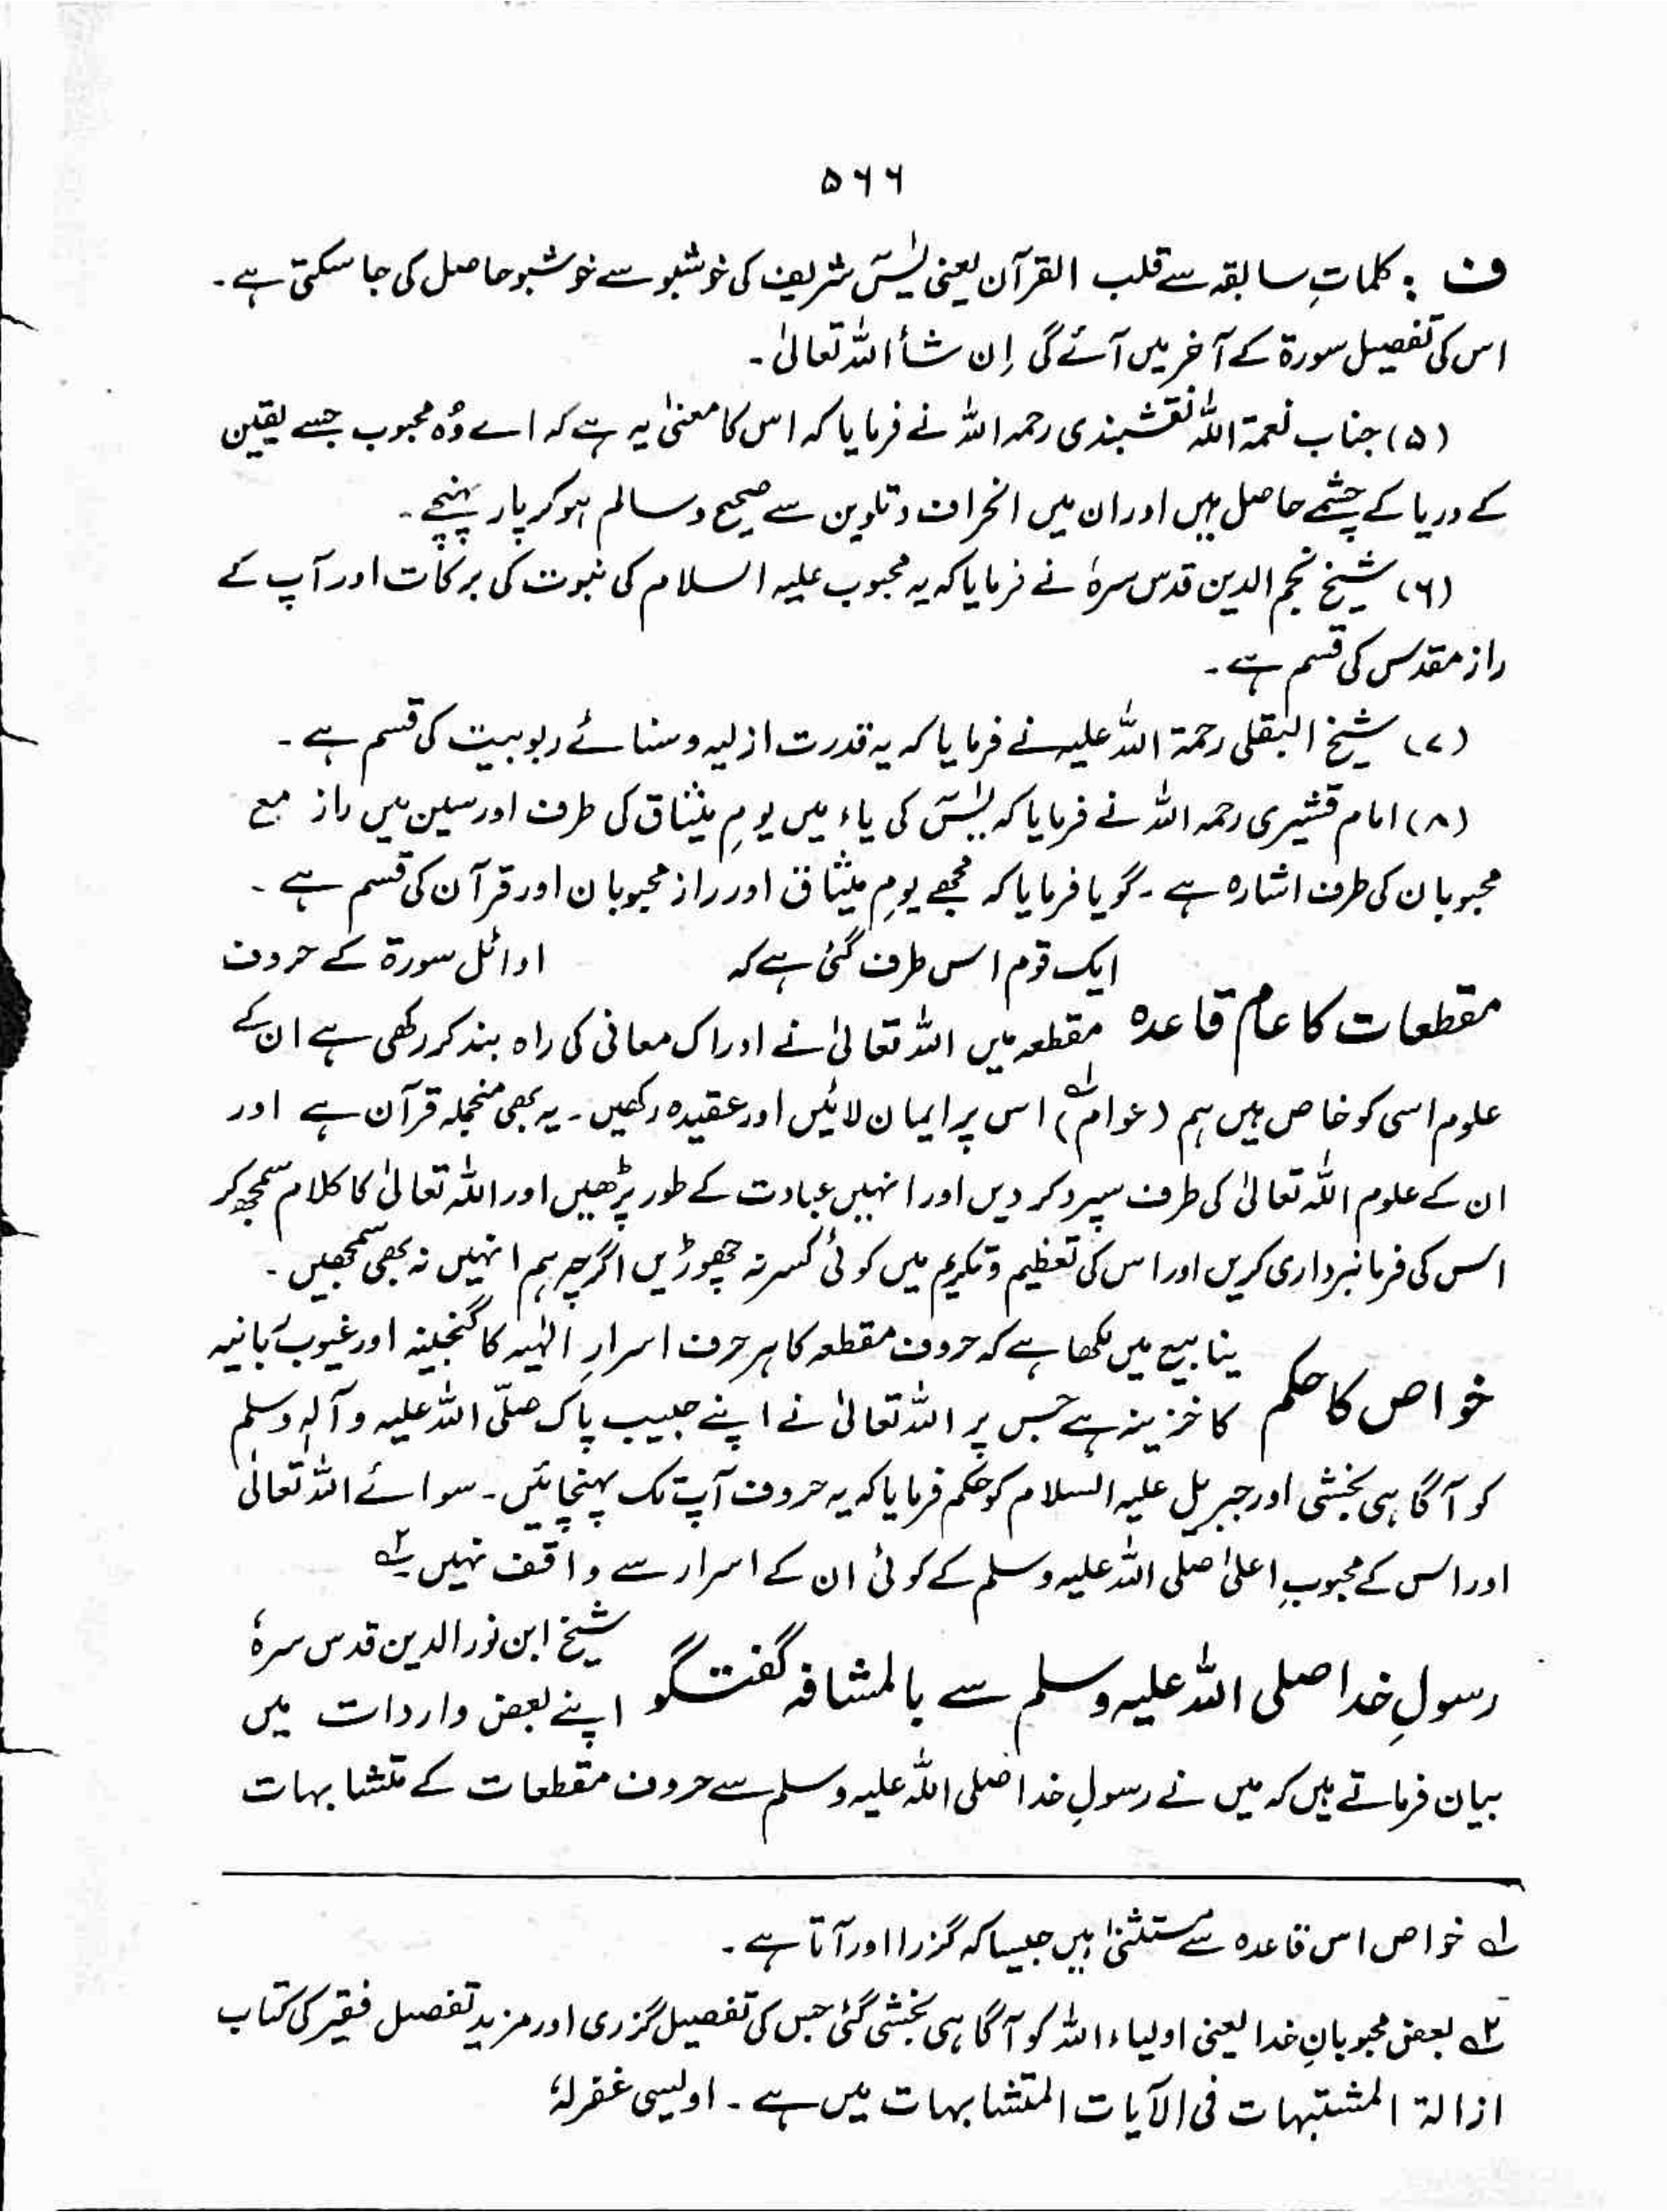 ۵۶۶
ف : کلماتِ سابقہ سے قلب القرآن یعنی یٰسٓ شریف کی خوشبو سے خوشبو حاصل کی جا سکتی ہے۔
اس کی تفصیل سورۃ کے آخر میں آئے گی اِن شأ اللہ تعالیٰ۔
(۵) جناب نعمۃ اللہ نقشبندی رحمہ اللہ نے فرمایا کہ اس کا معنیٰ یہ ہے کہ اے وُہ محبوب جسے یقین
کے دریا کے چشمے حاصل ہیں اور ان میں انحراف و تلوین سے صحیح و سالم ہو کر پار پہنچے۔
(۶) شیخ نجم الدین قدس سرہٗ نے فرمایا کہ یہ محبوب علیہ السلام کی نبوت کی برکات اور آپ کے
راز مقدس کی قسم ہے۔
(۷) شیخ البقلی رحمۃ اللہ علیہ نے فرمایا کہ یہ قدرت ازلیہ و سنائے ربوبیت کی قسم ہے۔
(۸) امام قشیری رحمہ اللہ نے فرمایا کہ یٰسٓ کی یاء میں یومِ میثاق کی طرف اور سین میں راز مع
محبوبان کی طرف اشارہ ہے۔ گویا فرمایا کہ مجھے یومِ میثاق اور راز محبوبان اور قرآن کی قسم ہے۔
مقطعات کا عام قاعدہ ایک قوم اس طرف گئی ہے کہ اوائل سورۃ کے حروف
مقطعہ میں اللہ تعالیٰ نے ادراک معانی کی راہ بند کر رکھی ہے ان کے
علوم اسی کو خاص ہیں ہم (عوام)؂۱ اس پر ایمان لائیں اور عقیدہ رکھیں۔ یہ بھی منجملہ قرآن ہے اور
ان کے علوم اللہ تعالیٰ کی طرف سپرد کر دیں اور انہیں عبادت کے طور پڑھیں اور اللہ تعالیٰ کا کلام سمجھ کر
اس کی فرمانبرداری کریں اور اس کی تعظیم و تکریم میں کوئی کسر نہ چھوڑیں اگرچہ ہم انہیں نہ بھی سمجھیں۔
خواص کا حکم ینابیع میں لکھا ہے کہ حروف مقطعہ کا ہر حرف اسرارِ الٰہیہ کا گنجینہ اور غیوب ربانیہ
کا خزینہ ہے جس پر اللہ تعالیٰ نے اپنے حبیب پاک صلّی اللہ علیہ وآلہٖ وسلم
کو آگاہی بخشی اور جبریل علیہ السلام کو حکم فرمایا کہ یہ حروف آپ تک پہنچائیں۔ سوائے اللہ تعالیٰ
اور اس کے محبوبِ اعلیٰ صلی اللہ علیہ وسلم کے کوئی ان کے اسرار سے واقف نہیں۔؂۲
رسولِ خدا صلی اللہ علیہ وسلم سے بالمشافہ گفتگو شیخ ابن نور الدین قدس سرہٗ
اپنے بعض واردات میں
بیان فرماتے ہیں کہ میں نے رسولِ خدا صلی اللہ علیہ وسلم سے حروف مقطعات کے متشابہات
؂۱ خواص اس قاعدہ سے مستثنیٰ ہیں جیسا کہ گزرا اور آتا ہے۔
؂۲ بعض محبوبانِ خدا یعنی اولیاء اللہ کو آگاہی بخشی گئی جس کی تفصیل گزری اور مزید تفصیل فقیر کی کتاب
ازالۃ المشتبہات فی الآیات المتشابہات میں ہے۔ اویسی غفرلہٗ